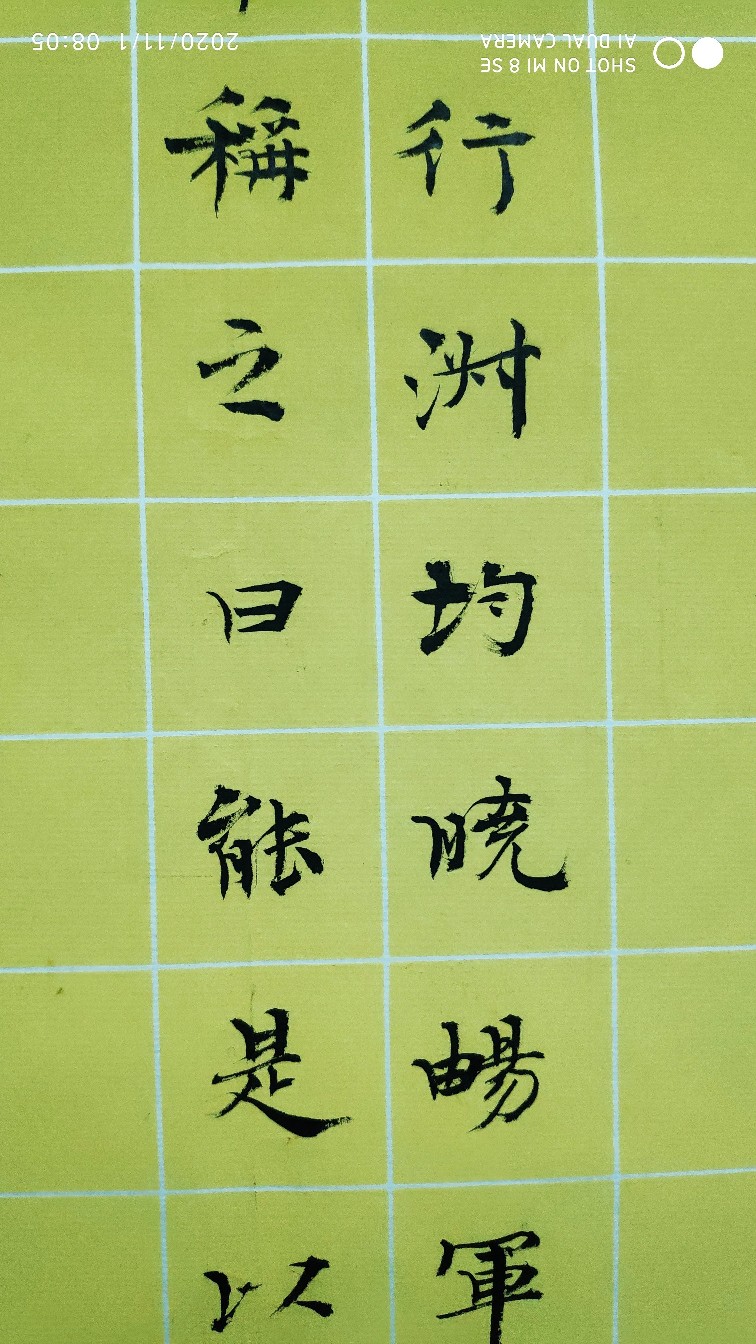 行淑均曉暢軍
稱之曰能是以
SHOT ON MI 8 SE
AI DUAL CAMERA
2020/11/1 08:05